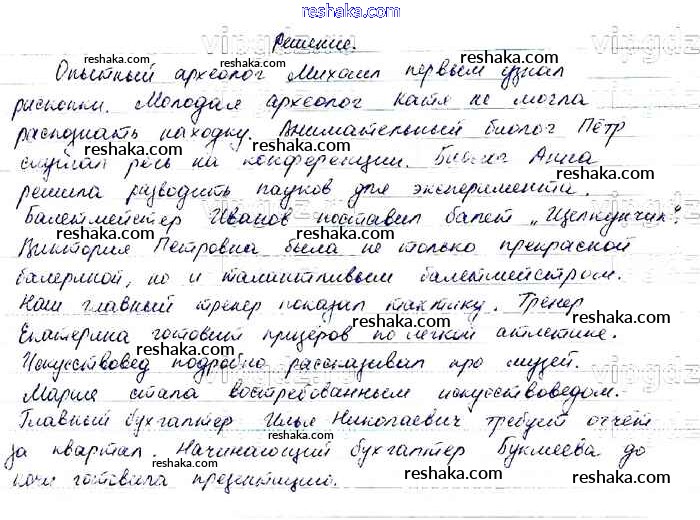 reshaka.com
Решение.
Опытный археолог Михаил первым узнал
раскопки. Молодая археолог Катя не могла
распознать находку. Внимательный биолог Пётр
слушал речь на конференции. Биолог Анна
решила разводить пауков для эксперимента.
Балетмейстер Иванов поставил балет „Щелкунчик".
Виктория Петровна была не только прекрасной
балериной, но и талантливым балетмейстром.
Наш главный тренер показал тактику. Тренер
Екатерина готовит призёров по лёгкой атлетике.
Искусствовед подробно рассказывал про музей.
Мария стала востребованным искусствоведом.
Главный бухгалтер Илья Николаевич требует отчёт
за квартал. Начинающий бухгалтер Букмеева до
ночи готовила презентацию.